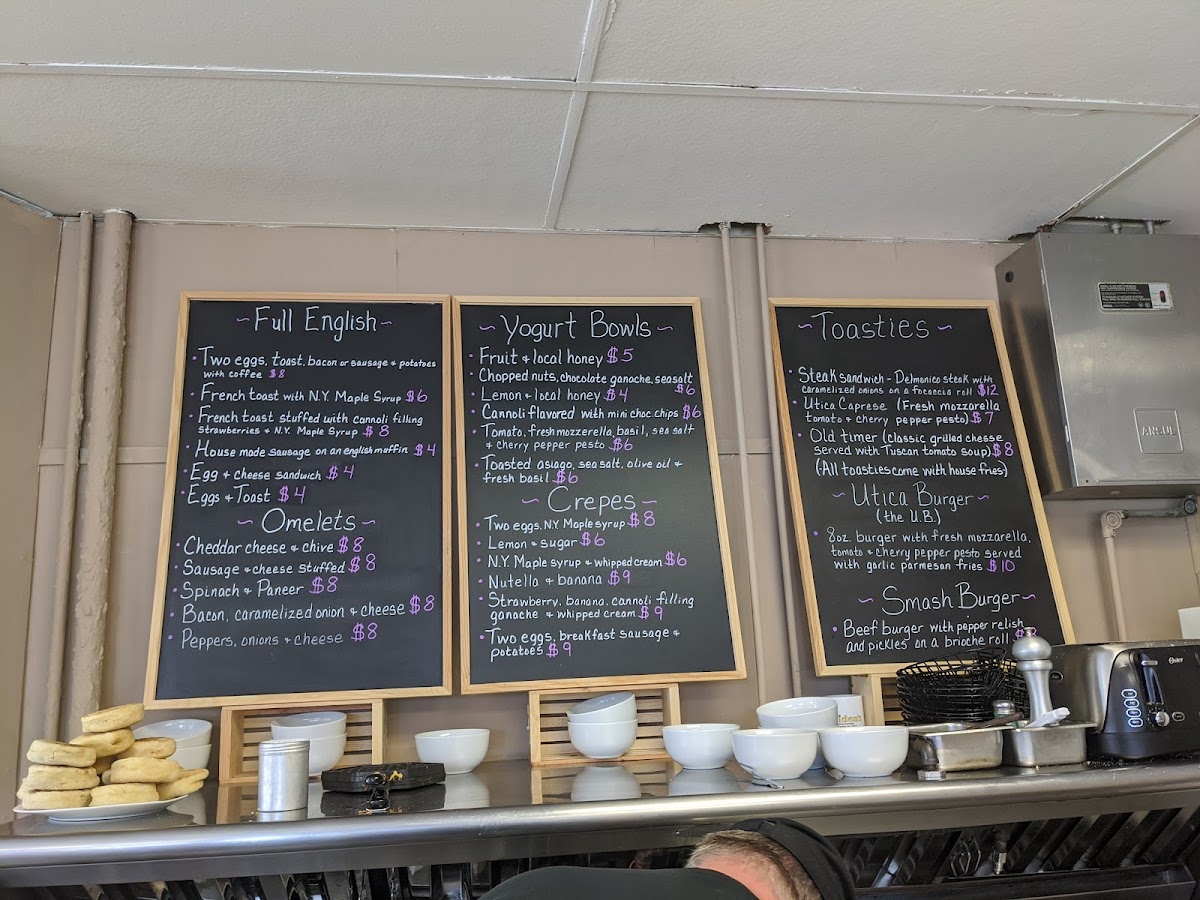 ~Full English~
• Two eggs, toast, bacon or sausage & potatoes
with coffee $8
• French toast with N.Y. Maple Syrup $6
• French toast stuffed with cannoli filling
strawberries & N.Y. Maple Syrup $8
• House made sausage on an english muffin $4
• Egg & cheese sandwich $4
• Eggs & Toast $4
~Omelets~
• Cheddar cheese & chive $8
• Sausage & cheese stuffed $8
• Spinach & Paneer $8
Bacon, caramelized onion & cheese $8
• Peppers, onions & cheese $8
~Yogurt Bowls~
• Fruit & local honey $5
• Chopped nuts, chocolate ganache, seasalt
$6
• Lemon & local honey $4
• Cannoli flavored with mini choc. chips $6
• Tomato, fresh mozzerella, basil, sea salt
& cherry pepper pesto $6
• Toasted asiago, sea salt, olive oil &
fresh basil $6
~Crepes~
• Two eggs, N.Y. Maple syrup $8
• Lemon & sugar $6
• N.Y. Maple syrup & whipped cream $6
• Nutella & banana $9
• Strawberry, banana, cannoli filling
ganache & whipped cream $9
• Two eggs, breakfast sausage &
potatoes $9
~Toasties~
• Steak sandwich - Delmonico steak with
caramelized onions on a focaccia roll $12
• Utica Caprese (Fresh mozzarella
tomato & cherry pepper pesto) $7
• Old timer (classic grilled cheese
served with Tuscan tomato soup) $8
(All toasties come with house fries)
~Utica Burger~
(the U.B.)
• 8oz. burger with fresh mozzarella,
tomato & cherry pepper pesto served
with garlic parmesan fries $10
~Smash Burger~
• Beef burger with pepper relish
and pickles on a brioche roll
ANSUL
Oster